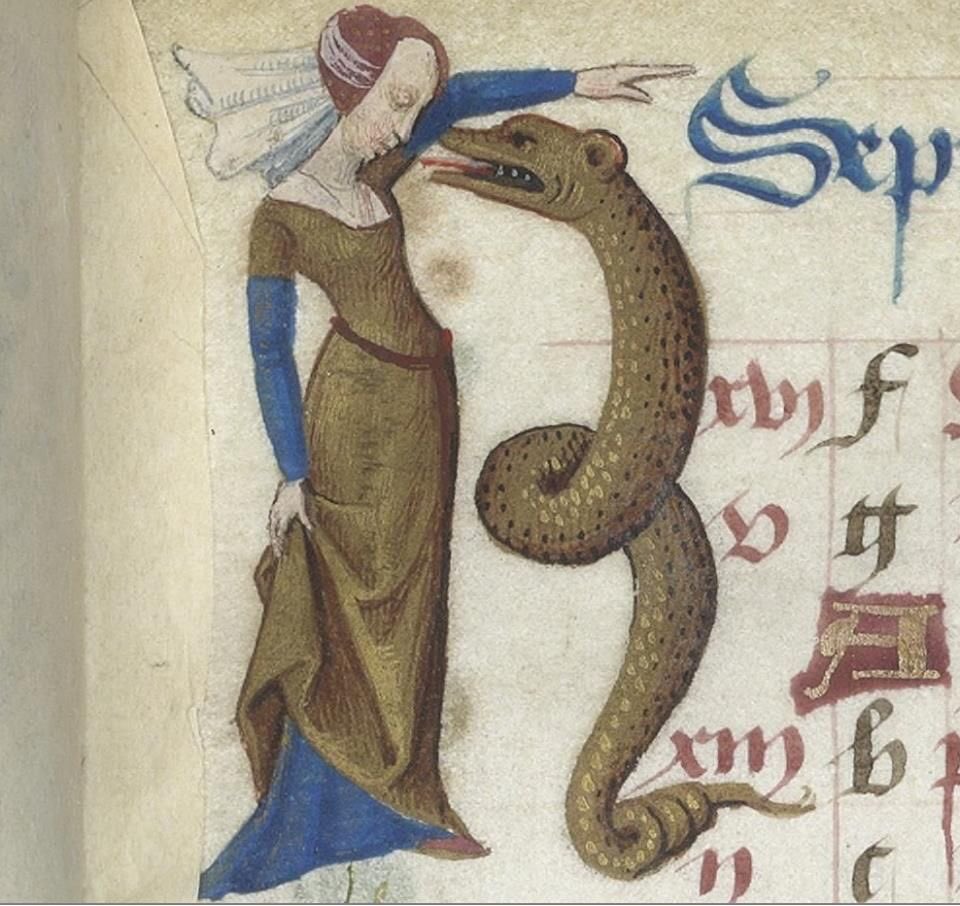 Sep
xvj f
v g
A
xiij b
ij c